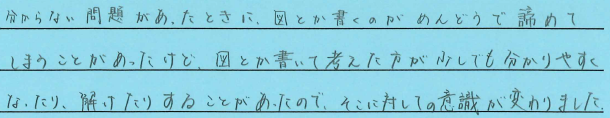 分からない問題があったときに、図とか書くのがめんどうで諦めて
しまうことがあったけど、図とか書いて考えた方が少しでも分かりやすく
なったり、解けたりすることがあったので、そこに対しての意識が変わりました。